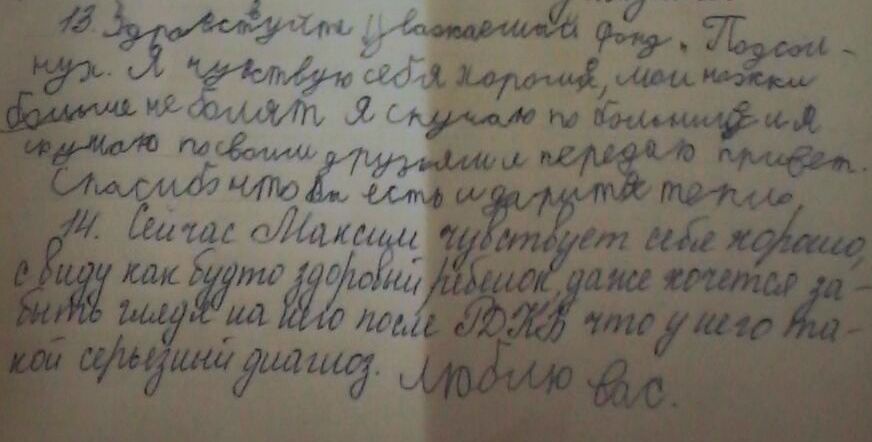 13. Здравствуйте Уважаемый фонд. Подсол-
нух. Я чувствую себя хорошия, мои ножки
больше не болят Я скучаю по больнице и я
скучаю по своим друзьям и передаю привет.
Спасибо что вы есть и дарите тепло.
14. Сейчас Максим чувствует себя хорошо,
с виду как будто здоровый ребенок, даже хочется за-
быть глядя на него после РДКБ что у него та-
кой серьезный диагноз. Люблю вас.